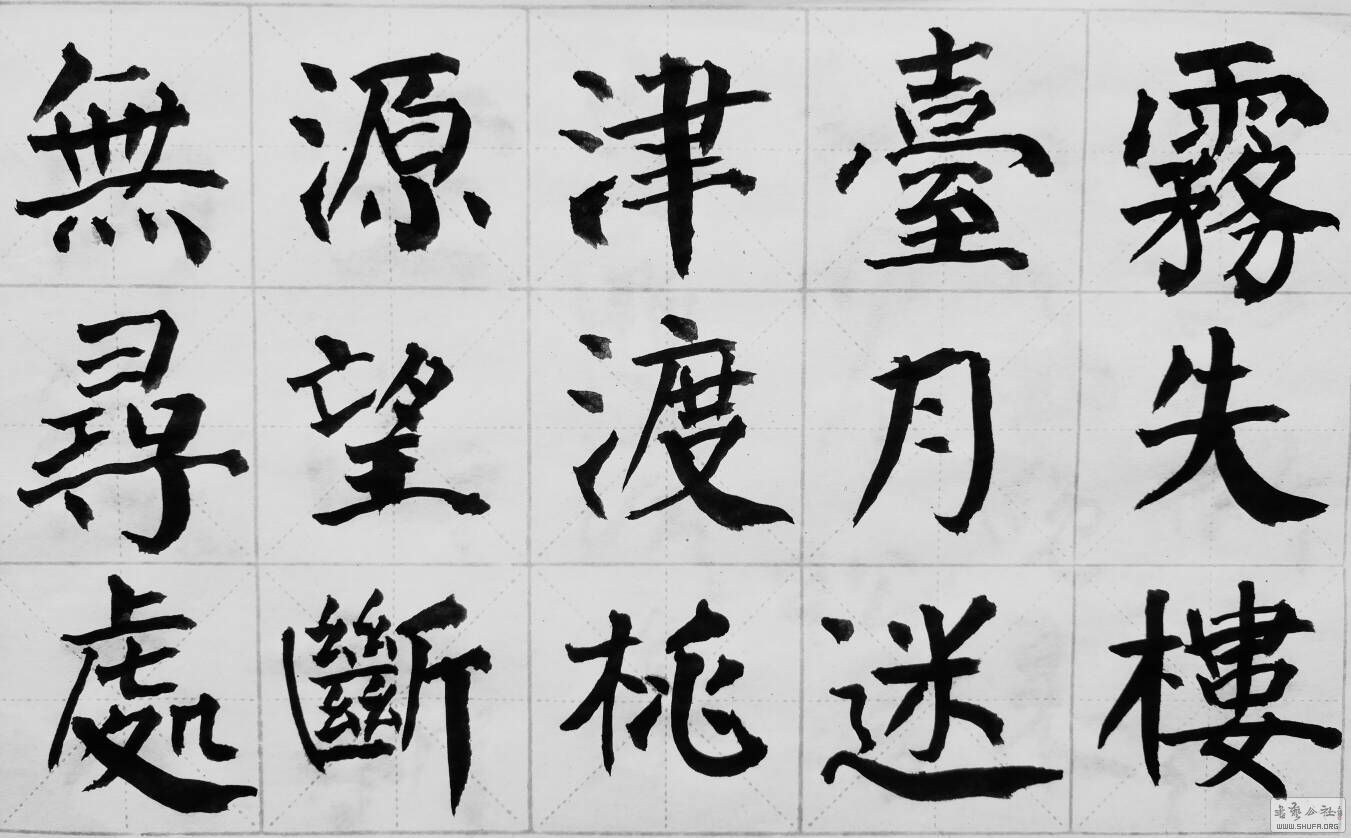 霧失樓
臺月迷
津渡桃
源望斷
無尋處
WWW.SHUFA.ORG